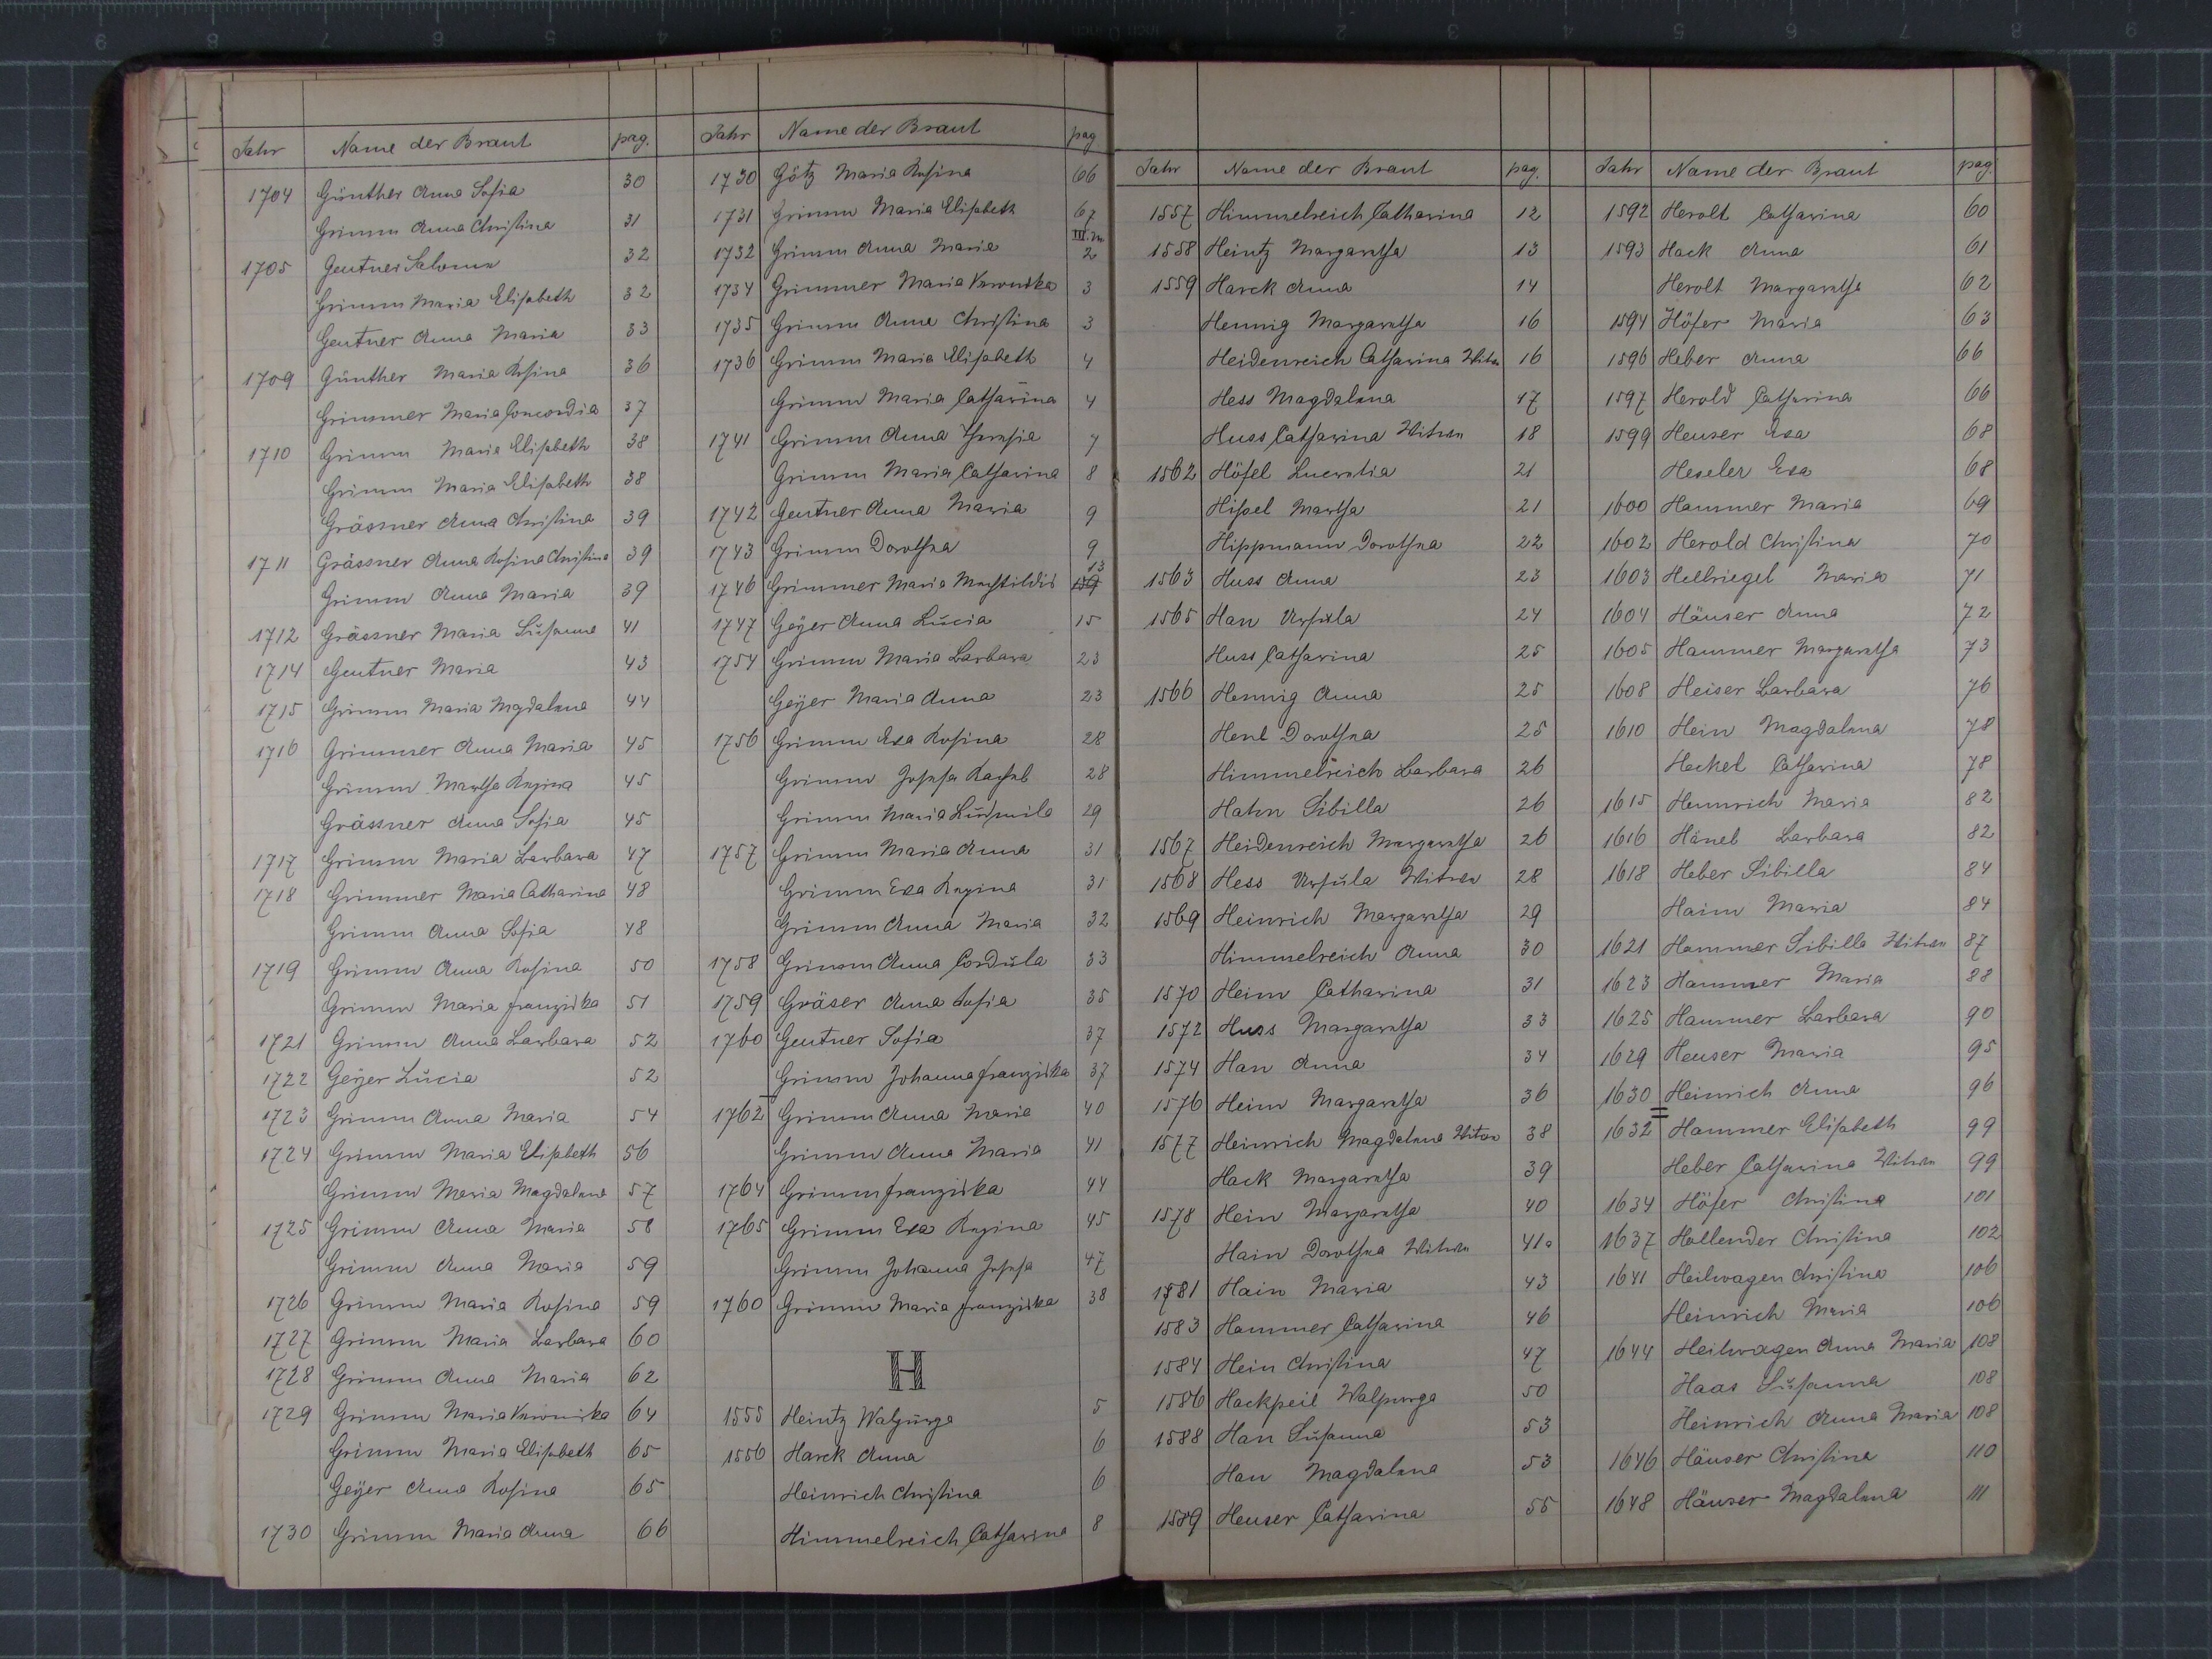 Jahr Name der Braut pag.
1704 Günther Anna Sofia 30
Grimm Anna Christina 31
1705 Gentner Salome 32
Grimm Maria Elisabeth 32
Gentner Anna Maria 33
1709 Günther Maria Rosina 36
Grimmer Maria Concordia 37
1710 Grimm Maria Elisabeth 38
Grimm Maria Elisabeth 38
Grässner Anna Christina 39
1711 Grässner Anna Rosina Christina 39
Grimm Anna Maria 39
1712 Grässner Maria Susanna 41
1714 Gentner Maria 43
1715 Grimm Maria Magdalena 44
1716 Grimmer Anna Maria 45
Grimm Martha Regina 45
Grässner Anna Sofia 45
1717 Grimm Maria Barbara 47
1718 Grimmer Maria Catharina 48
Grimm Anna Sofia 48
1719 Grimm Anna Rosina 50
Grimm Maria Franziska 51
1721 Grimm Anna Barbara 52
1722 Geÿer Lucia 52
1723 Grimm Anna Maria 54
1724 Grimm Maria Elisabeth 56
Grimm Maria Magdalena 57
1725 Grimm Anna Maria 58
Grimm Anna Maria 59
1726 Grimm Maria Rosina 59
1727 Grimm Maria Barbara 60
1728 Grimm Anna Maria 62
1729 Grimm Maria Veronika 64
Grimm Maria Elisabeth 65
Geÿer Anna Rosina 65
1730 Grimm Maria Anna 66
Jahr Name der Braut pag
1730 Götz Maria Rosina 66
1731 Grimm Maria Elisabeth 67
III.
1732 Grimm Anna Maria 2
1734 Grimmer Maria Veronika 3
1735 Grimm Anna Christina 3
1736 Grimm Maria Elisabeth 4
Grimm Maria Catharina 4
1741 Grimm Anna Theresia 7
Grimm Maria Catharina 8
1742 Gentner Anna Maria 9
1743 Grimm Dorothea 9
1746 Grimmer Maria Mechtildis 13
1747 Geÿer Anna Lucia 15
1754 Grimm Maria Barbara 23
Geÿer Maria Anna 23
1756 Grimm Eva Rosina 28
Grimm Josefa Rachel 28
Grimm Maria Ludmila 29
1757 Grimm Maria Anna 31
Grimm Eva Regina 31
Grimm Anna Maria 32
1758 Grimm Anna Cordula 33
1759 Gräser Anna Sofia 35
1760 Gentner Sofia 37
Grimm Johanna Franziska 37
1762 Grimm Anna Maria 40
Grimm Anna Maria 41
1764 Grimm Franziska 44
1765 Grimm Eva Regina 45
Grimm Johanna Josefa 47
1760 Grimm Maria Franziska 38
H
1555 Heintz Walpurga 5
1556 Harck Anna 6
Heinrich Christina 6
Himmelreich Catharina 8
Jahr Name der Braut pag.
1557 Himmelreich Catharina 12
1558 Heintz Margaretha 13
1559 Harck Anna 14
Hennig Margaretha 16
Heidenreich Catharina Witwe 16
Hess Magdalena 17
Huss Catharina Witwe 18
1562 Höfel Lucretia 21
Hisel Martha 21
Hippmann Dorothea 22
1563 Huss Anna 23
1565 Han Ursula 24
Huss Catharina 25
1566 Hennig Anna 25
Henl Dorothea 25
Himmelreich Barbara 26
Hahn Sibilla 26
1567 Heidenreich Margaretha 26
1568 Hess Ursula Witwe 28
1569 Heinrich Margaretha 29
Himmelreich Anna 30
1570 Heim Catharina 31
1572 Huss Margaretha 33
1574 Han Anna 34
1576 Heim Margaretha 36
1577 Heinrich Magdalena Witwe 38
Hack Margaretha 39
1578 Hein Margaretha 40
Hain Dorothea Witwe 41a
1581 Hain Maria 43
1583 Hammer Catharina 46
1584 Hein Christina 47
1586 Hackpeil Walpurga 50
1588 Han Susanna 53
Han Magdalena 53
1589 Heuser Catharina 55
Jahr Name der Braut pag.
1592 Herolt Catharina 60
1593 Hack Anna 61
Herolt Margaretha 62
1594 Höfer Maria 63
1596 Heber Anna 66
1597 Herold Catharina 66
1599 Heuser Eva 68
Heseler Eva 68
1600 Hammer Maria 69
1602 Herold Christina 70
1603 Hellriegel Maria 71
1604 Häuser Anna 72
1605 Hammer Margaretha 73
1608 Heiser Barbara 76
1610 Hein Magdalena 78
Heckel Catharina 78
1615 Hennrich Maria 82
1616 Hänel Barbara 82
1618 Heber Sibilla 84
Haim Maria 84
1621 Hammer Sibilla Witwe 87
1623 Hammer Maria 88
1625 Hammer Barbara 90
1629 Heuser Maria 95
1630 Heinrich Anna 96
1632 Hammer Elisabeth 99
Heber Catharina Witwe 99
1634 Höfer Christina 101
1637 Hollender Christina 102
1641 Heilwagen Christina 106
Heinrich Maria 106
1644 Heilwagen Anna Maria 108
Haas Susanna 108
Heinrich Anna Maria 108
1646 Häuser Christina 110
1648 Häuser Magdalena 111